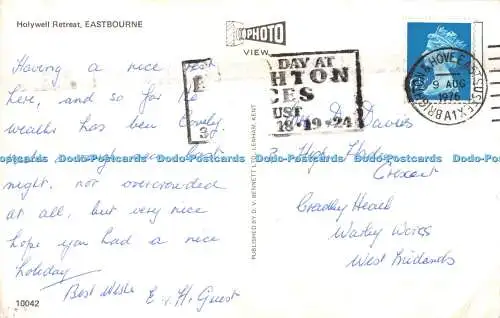 Holywell Retreat, EASTBOURNE
PHOTO
VIEW
Having a nice
here, and so far the
weather has been lovely
night, not overcrowded
at all, but very nice
hope you had a nice
holiday
Best Wishes E. & H. Guest
10042
PUBLISHED BY D. V. BENNETT LTD., LEBHAM, KENT
DAY AT
HTON
CES
UST
18-19-24
BRIGHTON & HOVE EAST SUSSEX
9 AUG
1976
Davies
3 High
Crescent
Cradley Heath
Warley
West Midlands
Dodo-Postcards Dodo-Postcards Dodo-Postcards Dodo-Postcards Dodo-Postcards Dodo-Postcards